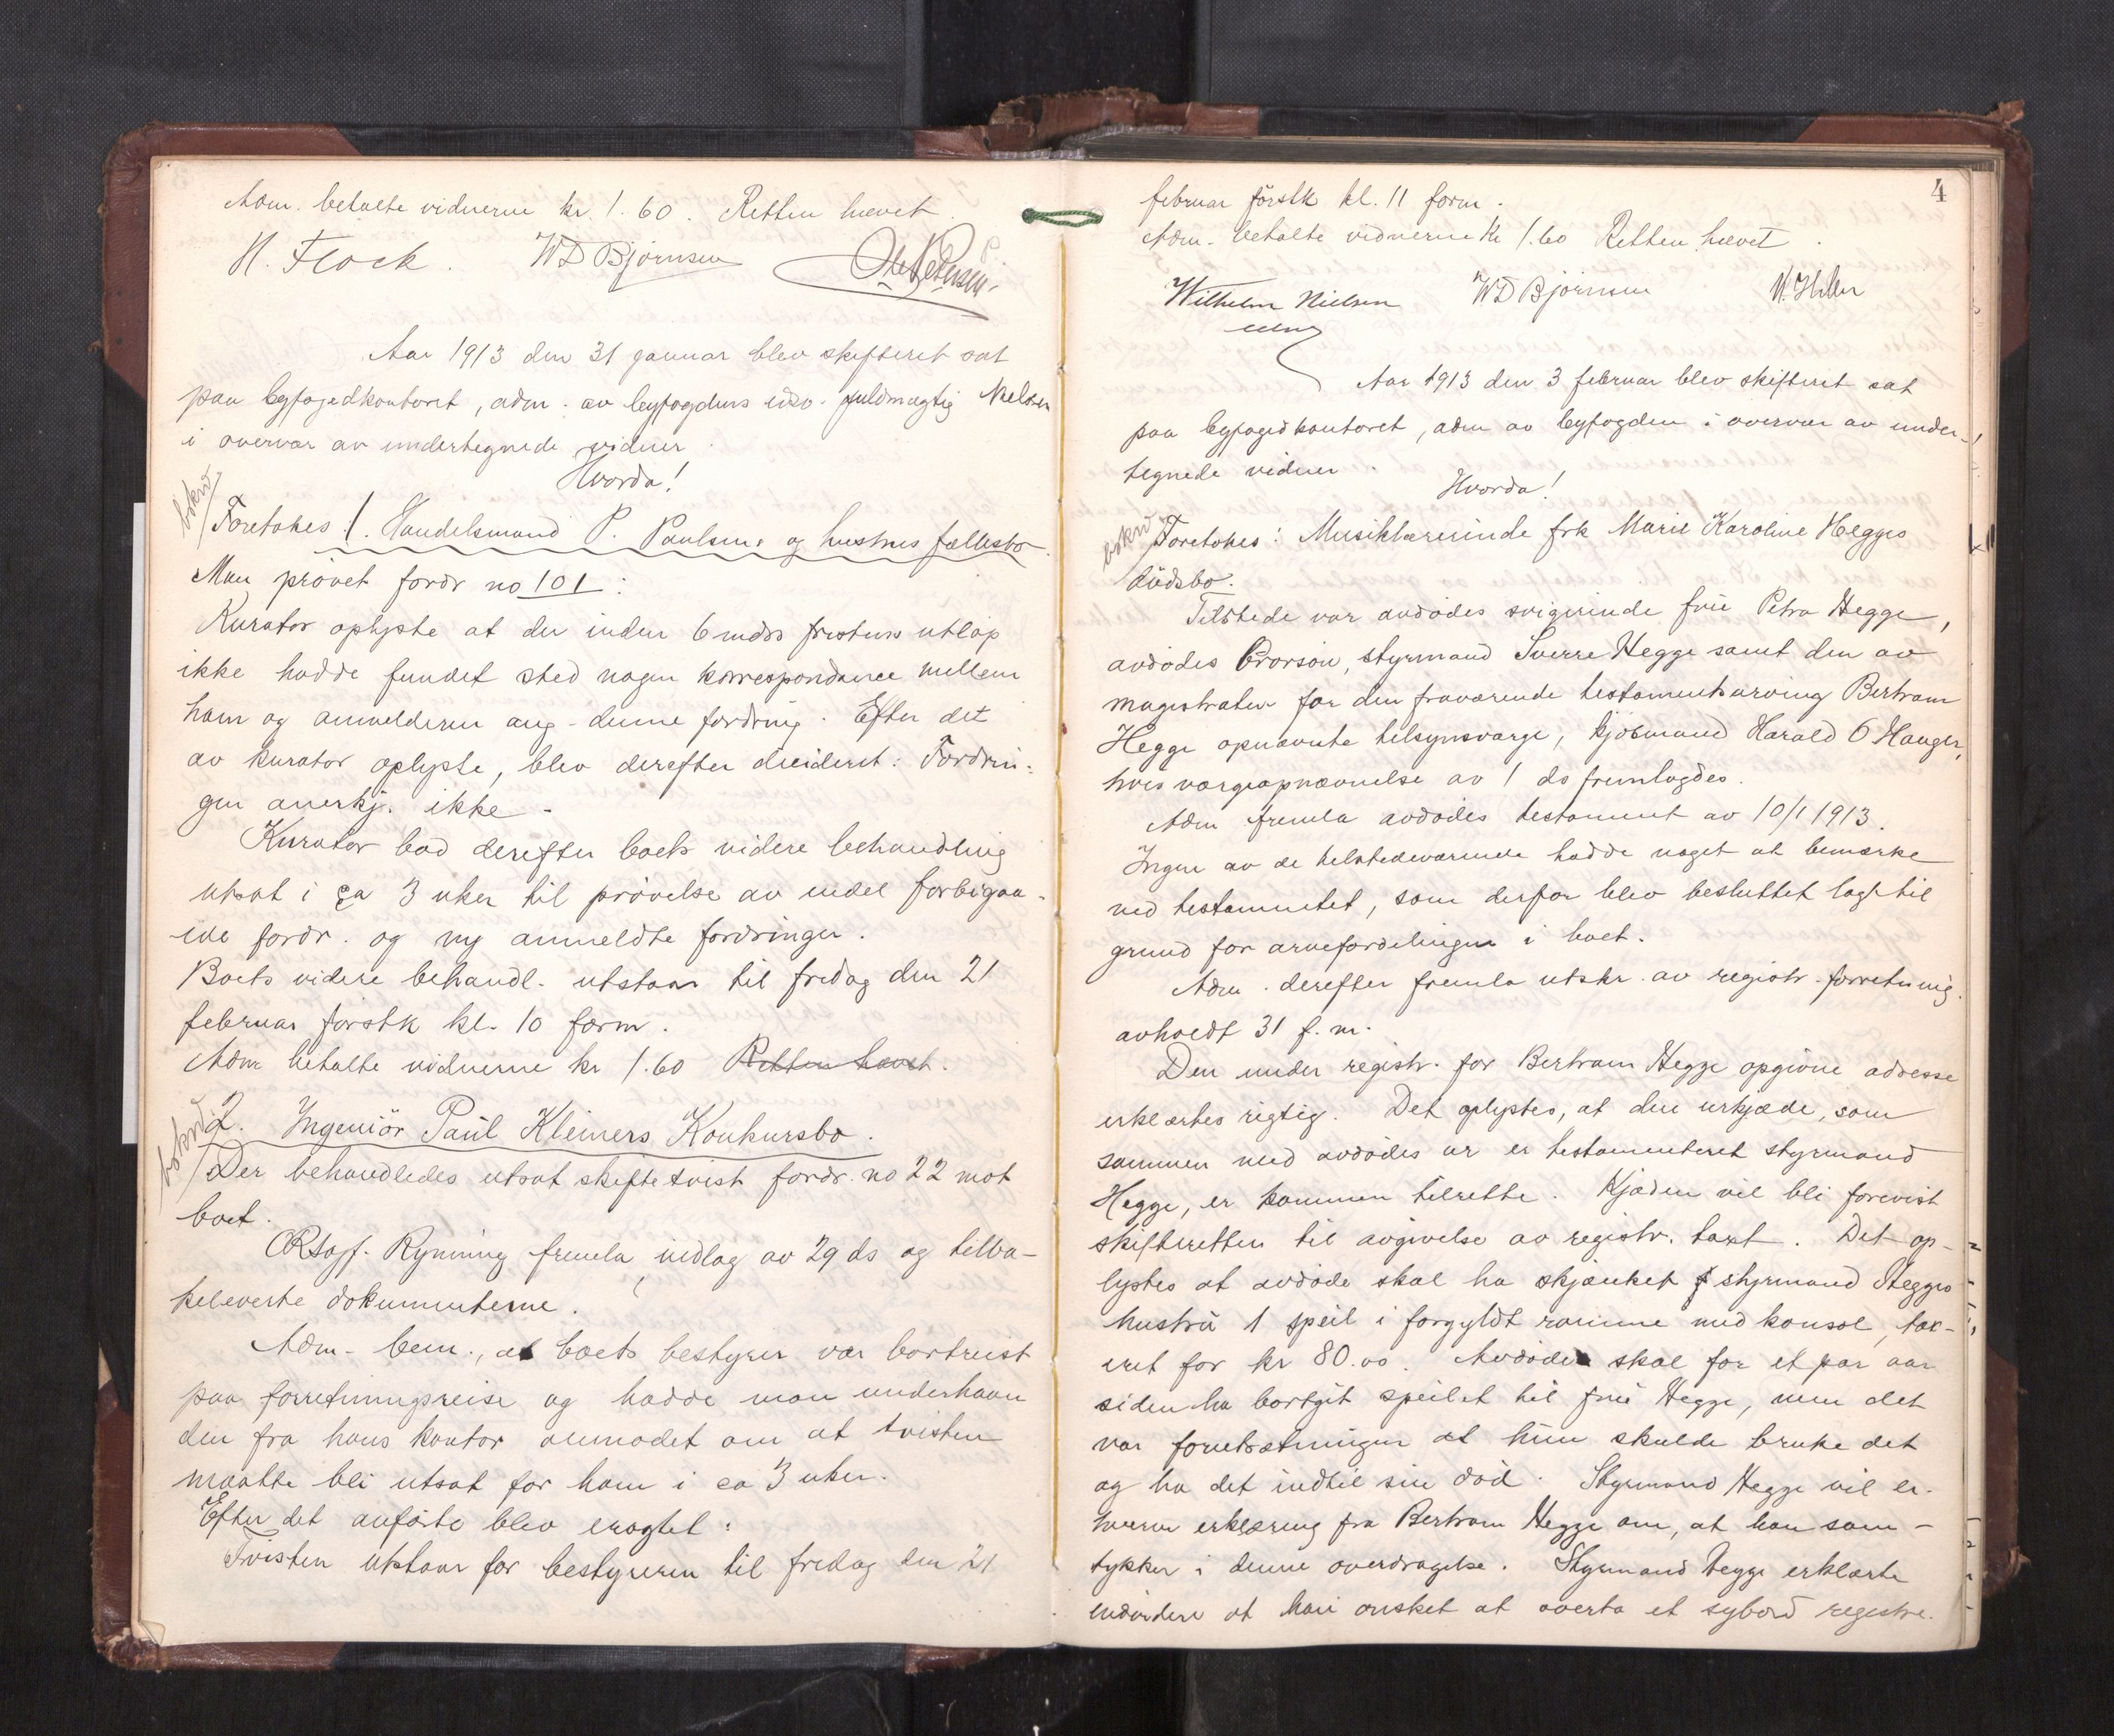 Adm. betalte vidnerne kr. 1.60. Retten hævet.
H. Flock. WD Bjørnsen Ole Pedersen.
Aar 1913 den 31 januar blev skifteret sat
paa byfogedkontoret, adm. av byfogdens edsv. fuldmægtig Nielsen
i overvær av undertegnede vidner.
Hvorda!
bokført
Foretokes 1. Handelsmand P. Paulsens og hustrus fællesbo.
Man prøvet fordr no 101:
Kurator oplyste at der inden 6 mdrs fristens utløp
ikke hadde fundet sted nogen korrespondance mellem
ham og anmelderen ang. denne fordring. Efter det
av kurator oplyste, blev derefter decideret: Fordrin-
gen anerkj. ikke.
Kurator bad derefter boets videre behandling
utsat i ca 3 uker til prøvelse av endel forbigaa-
ede fordr. og ny anmeldte fordringer.
Boets videre behandl. utstaar til fredag den 21
februar førstk kl. 10 form.
Adm betalte vidnerne kr 1.60 Retten hævet.
bokført
2. Ingeniør Paul Kleiners Konkursbo.
Der behandledes utsat skiftetvist fordr. no 22 mot
boet.
ORsagf. Rynning fremla indlæg av 29 ds og tilba-
keleverte dokumenterne.
Adm. bem., at boets bestyrer var bortreist
paa forretningsreise og hadde man underhaan
den fra hans kontor anmodet om at tvisten
maatte bli utsat for ham i ca 3 uker.
Efter det anførte blev eragtet:
Tvisten utstaar for bestyreren til fredag den 21
4
februar førstk kl. 11 form.
Adm. betalte vidnerne kr 1.60 Retten hævet.
Wilhelm Nielsen WD Bjørnsen
Aar 1913 den 3 februar blev skifteret sat
paa byfogedkontoret, adm av byfogden i overvær av under-
tegnede vidner.
Hvorda!
bokført
Foretokes: Musiklærerinde frk Marie Karoline Hegges
dødsbo.
Tilstede var avdødes svigerinde frue Petra Hegge,
avdødes brorsøn, styrmand Sverre Hegge samt den av
magistraten for den fraværende testamentsarving Bertram
Hegge opnævnte tilsynsværge, kjøbmand Harald O Hauger,
hvis værgeopnævnelse av 1 ds fremlagdes.
Adm fremla avdødes testament av 10/1 1913.
Ingen av de tilstedeværende hadde noget at bemærke
ved testamentet, som derfor blev besluttet lagt til
grund for arvefordelingen i boet.
Adm. derefter fremla utskr. av registr. forretning.
avholdt 31 f. m.
Den under registr. for Bertram Hegge opgivne adresse
erklærtes rigtig. Det oplystes, at den urkjæde, som
sammen med avdødes ur er testamenteret styrmand
Hegge, er kommen tilrette. Kjæden vil bli forevist
skifteretten til avgivelse av registr. taxt. Det op-
lystes at avdøde skal ha skjænket styrmand Hegges
hustru 1 speil i forgyldt ramme med konsol, tax-
eret for kr 80.00. Avdøde skal for et par aar
siden ha bortgit speilet til frue Hegge, men det
var forutsætningen at hun skulde bruke det
og ha det indtil sin død. Styrmand Hegge vil er-
hverve erklæring fra Bertram Hegge om, at han sam-
tykker i denne overdragelse. Styrmand Hegge erklærte
endvidere at han ønsket at overta et sybord registre-